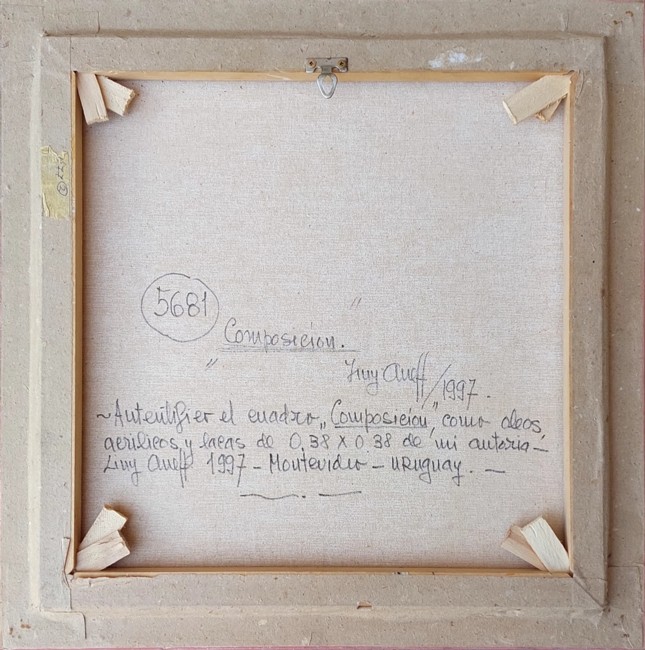 5681
" Composición. "
Liny Aneff / 1997.
~ Autentifier el cuadro „Composición" como oleos,
acrílicos y lacas de 0,38 X 0,38 de mi autoria —
Liny Aneff 1997 - Montevideo - URuguay. —